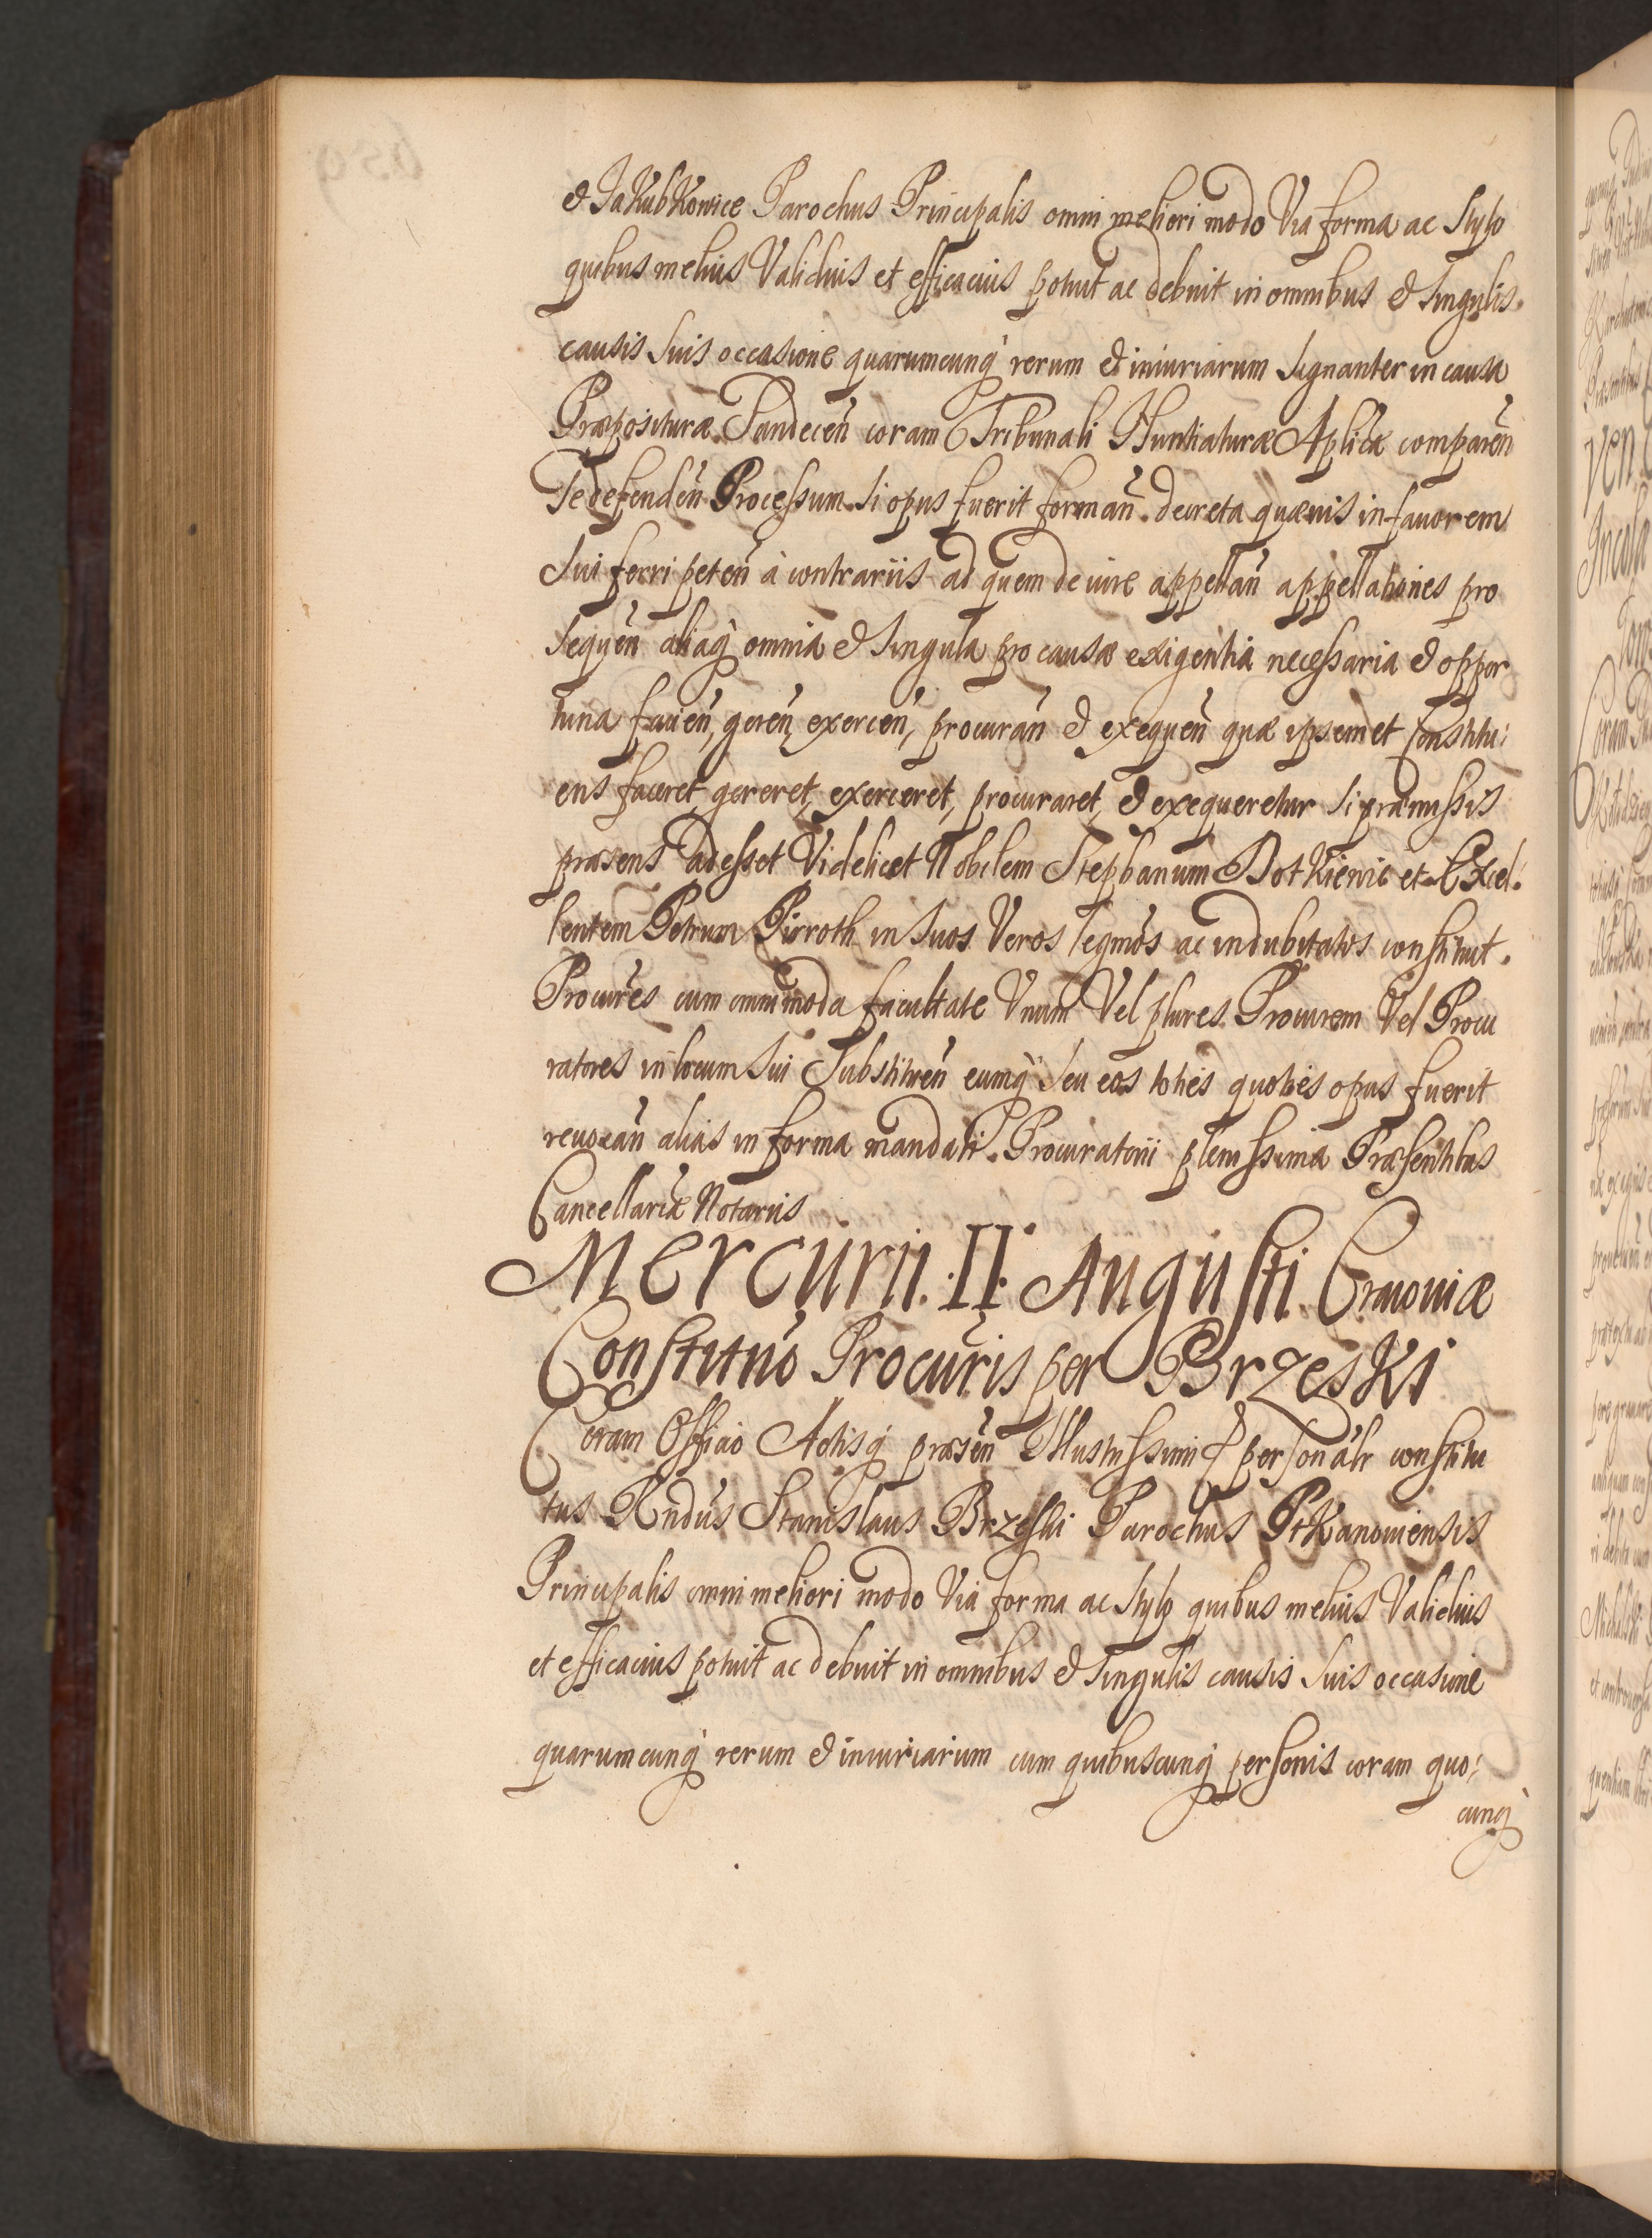 & JaKubKowice Parochus Principalis omni meliori modo Via forma ac Stylo
quibus melius Validius et efficacius potuit ac debuit in omnibus & Singulis
causis Suis occasione quarumcunq rerum & iniuriarum Signanter in causa
Præpositura Sandecen̄ coram Tribunali Nuntiaturæ Aplicæ comparen̄
Se defenden̄ Processum Si opus fuerit forman̄ decreta quævis in favorem
Sui ferri peten̄ à contrariis ad quem de iure appellan̄ appellationes pro
Sequen̄ aliaq omnia & Singula pro causæ exigentia necessaria & oppor
tuna facien̄, geren̄, exercen̄, procuran̄ & exequen̄ quæ ipsemet Constitu:
ens faceret, gereret, exerceret, procuraret, & exequeretur Si præmissis
præsens adesset Videlicet Nobilem Stephanum DotKievic et Excel:
lentem Petrum Pirroth in Suos Veros legmos ac indubitatos constituit.
Procures cum omnimoda facultate Vnum Vel plures Procurem Vel Procu
ratores in locum Sui Substituen̄ eumq Seu eos toties quoties opus fuerit
revocan̄ alias in forma mandati Procuratorii plenissima Præsentibus
Cancellariæ Notariis
Mercurii. II. Augusti. Cracoviæ
Constitutio Procuris per BrzesKi
Coram Officio Actisq præsen̄ Illustrissimi & personalr constitu
tus Rndus Stanislaus Brzeski Parochus PtKanoviensis
Principalis omni meliori modo Via forma ac Stylo quibus melius Validius
et efficacius potuit ac debuit in omnibus & Singulis causis Suis occasione
quarumcunq rerum & iniuriarum cum quibuscunq personis coram quo:
cunq